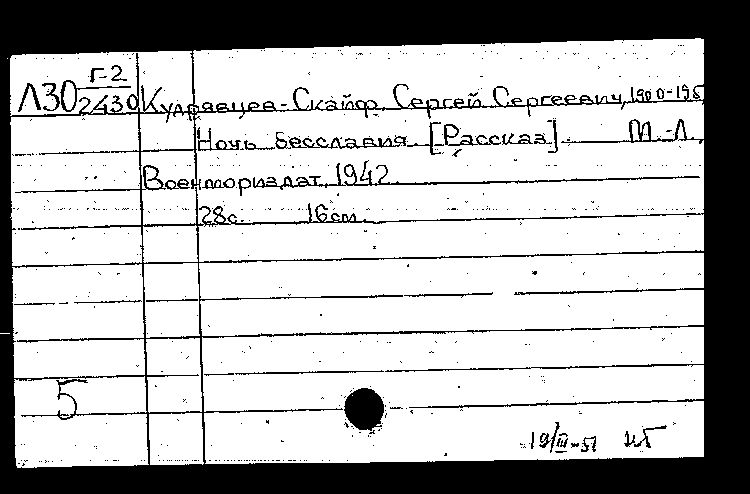 Г-2
Л30 2430 Кудрявцев-Скайф, Сергей Сергеевич,
Ночь бесславия. [Рассказ]. М.-Л.
Военмориздат, 1942.
28с. 16см.
5
19/III-51